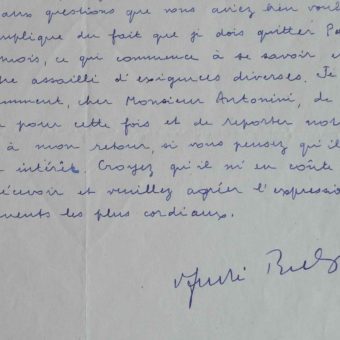 aux questions que vous aviez bien voul
mplique du fait que je dois quitter Pa
mois, ce qui commence à se savoir e
re assailli d'exigences diverses. Je
mment, cher Monsieur Antonini, de
pour cette fois et de reporter not
à mon retour, si vous pensez qu'il
intérêt. Croyez qu'il m'en coûte
écevoir et veuillez agréer l'expressio
ments les plus cordiaux.